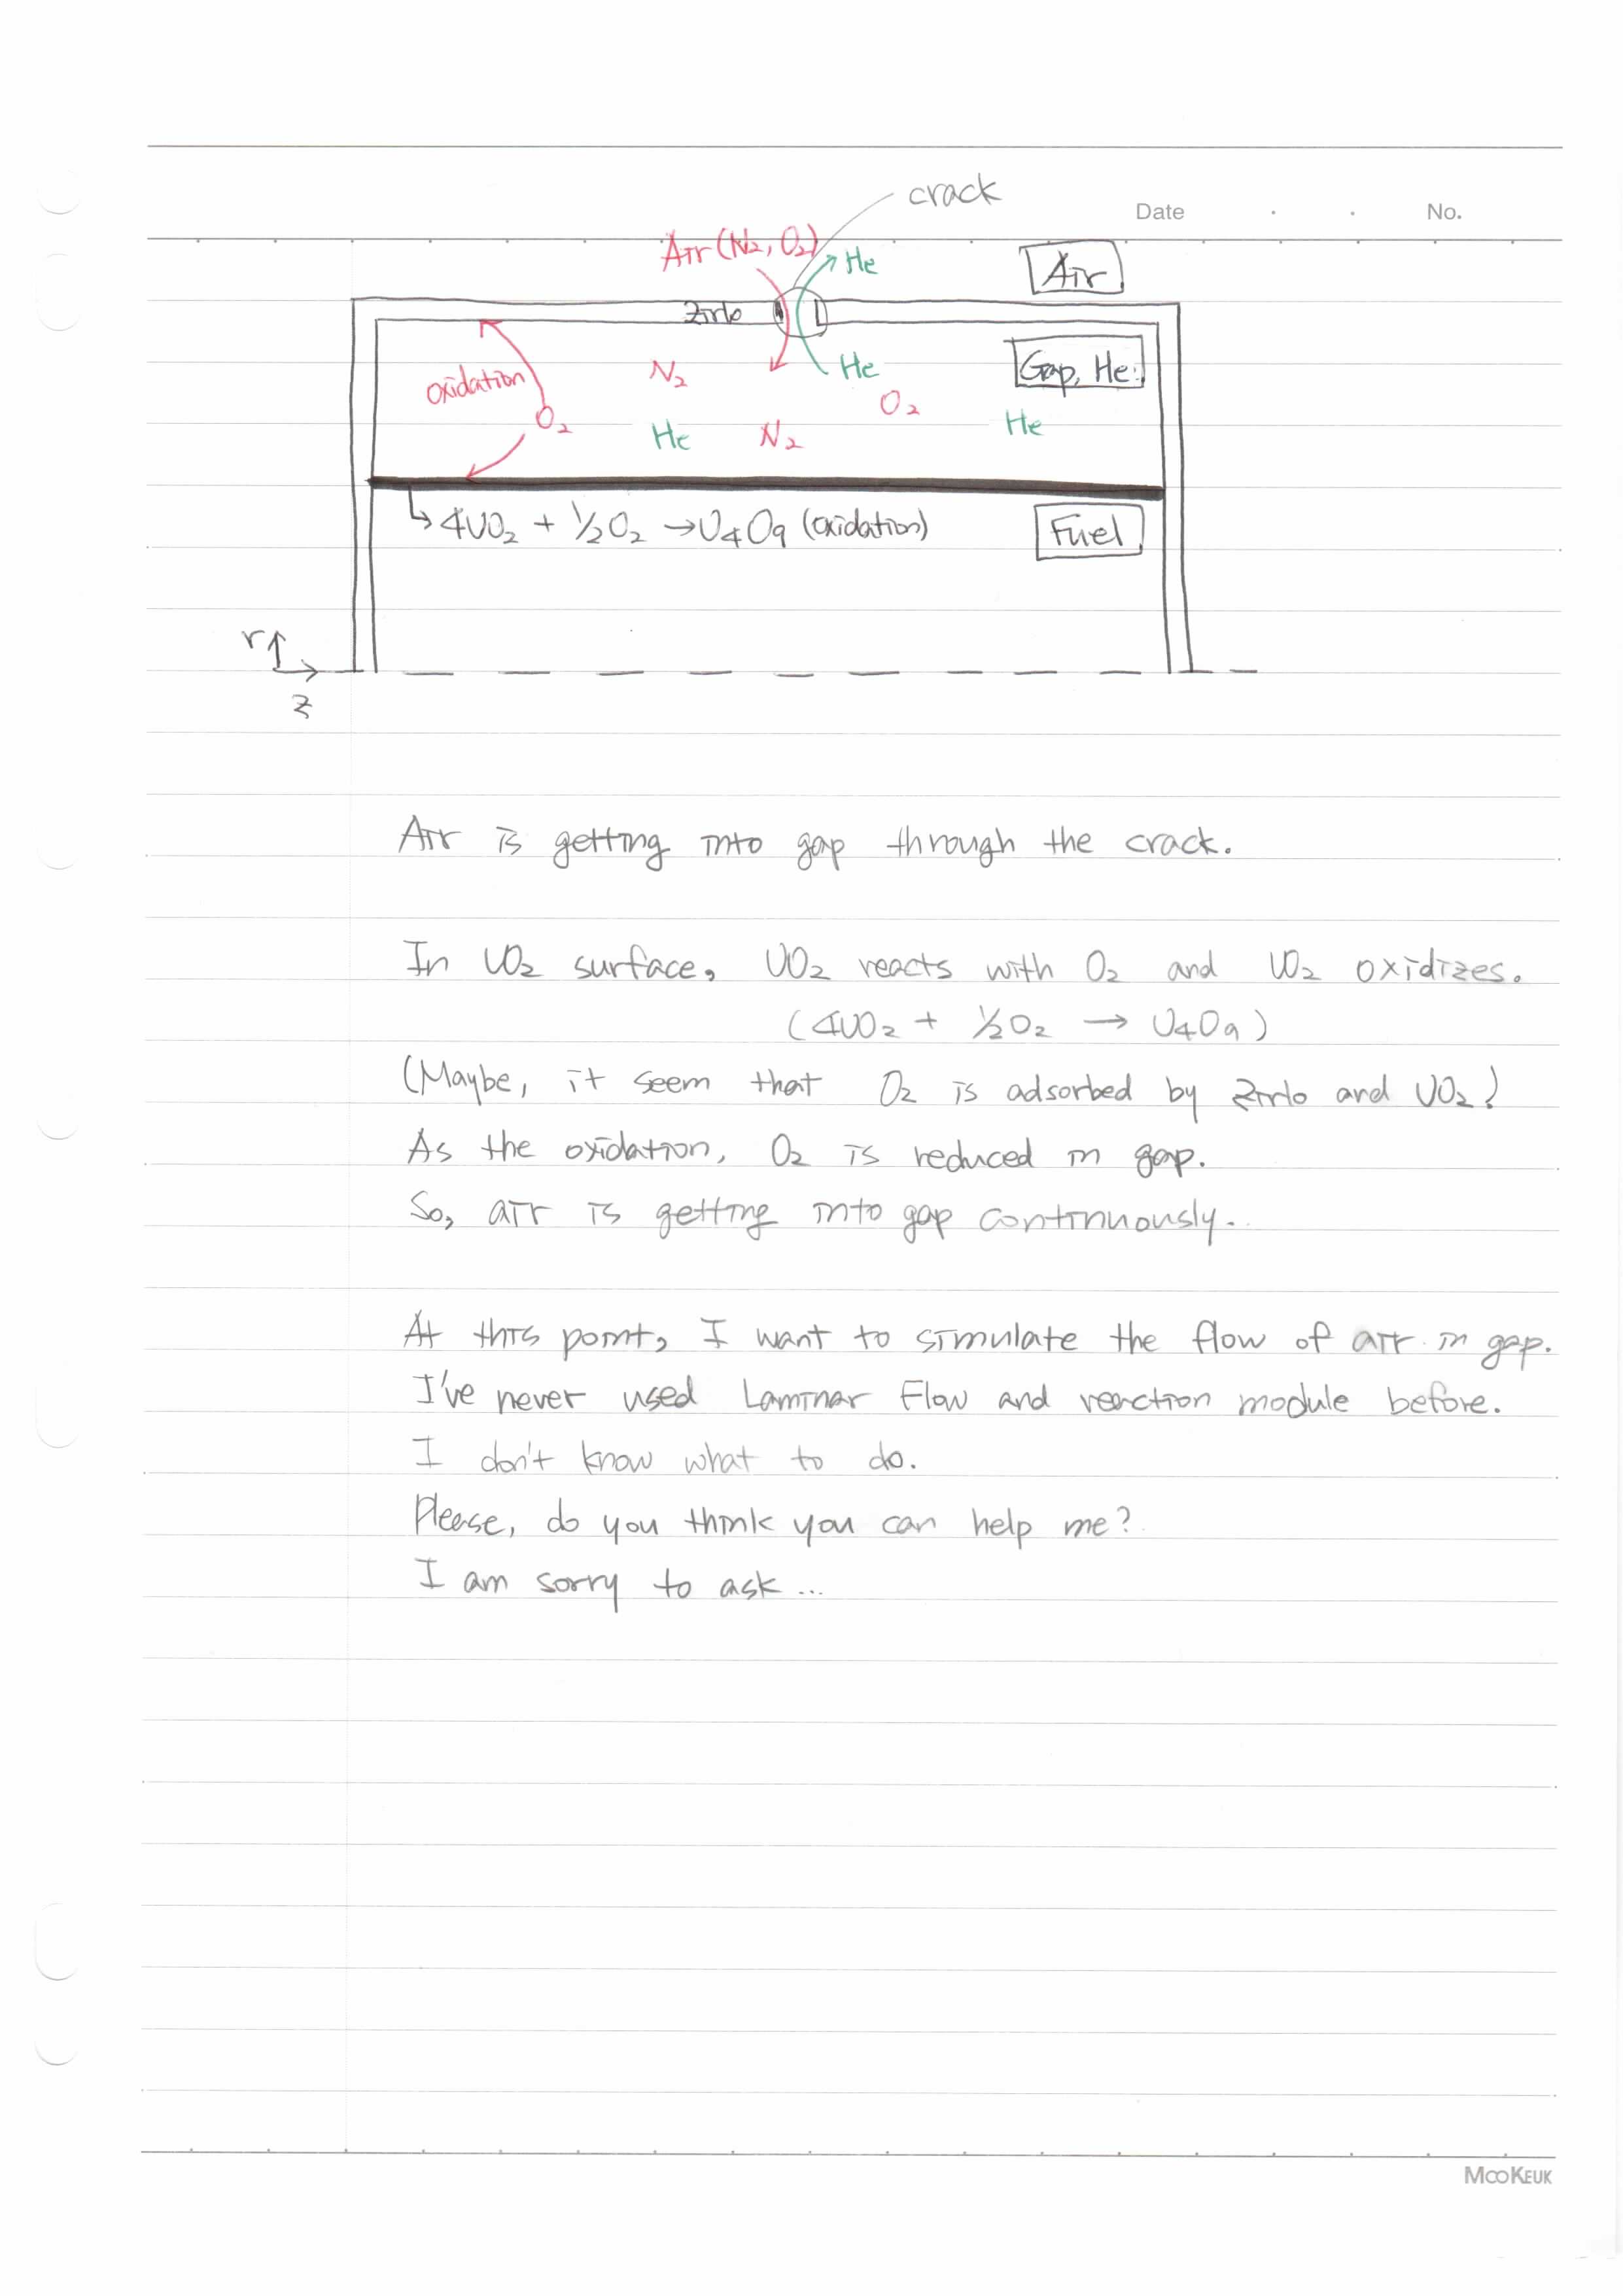 crack
Date . . No.
Air (N₂, O₂)
He
Air
Zirlo
N₂
He
Gap, He
oxidation
O₂
O₂
He
N₂
He
↳ 4UO₂ + ½O₂ → U₄O₉ (oxidation)
Fuel
r
z
Air is getting into gap through the crack.
In UO₂ surface, UO₂ reacts with O₂ and UO₂ oxidizes.
(4UO₂ + ½O₂ → U₄O₉)
(Maybe, it seem that O₂ is adsorbed by Zirlo and UO₂!)
As the oxidation, O₂ is reduced in gap.
So, air is getting into gap continuously.
At this point, I want to simulate the flow of air in gap.
I've never used Laminar Flow and reaction module before.
I don't know what to do.
Please, do you think you can help me?
I am sorry to ask ...
MOOKEUK